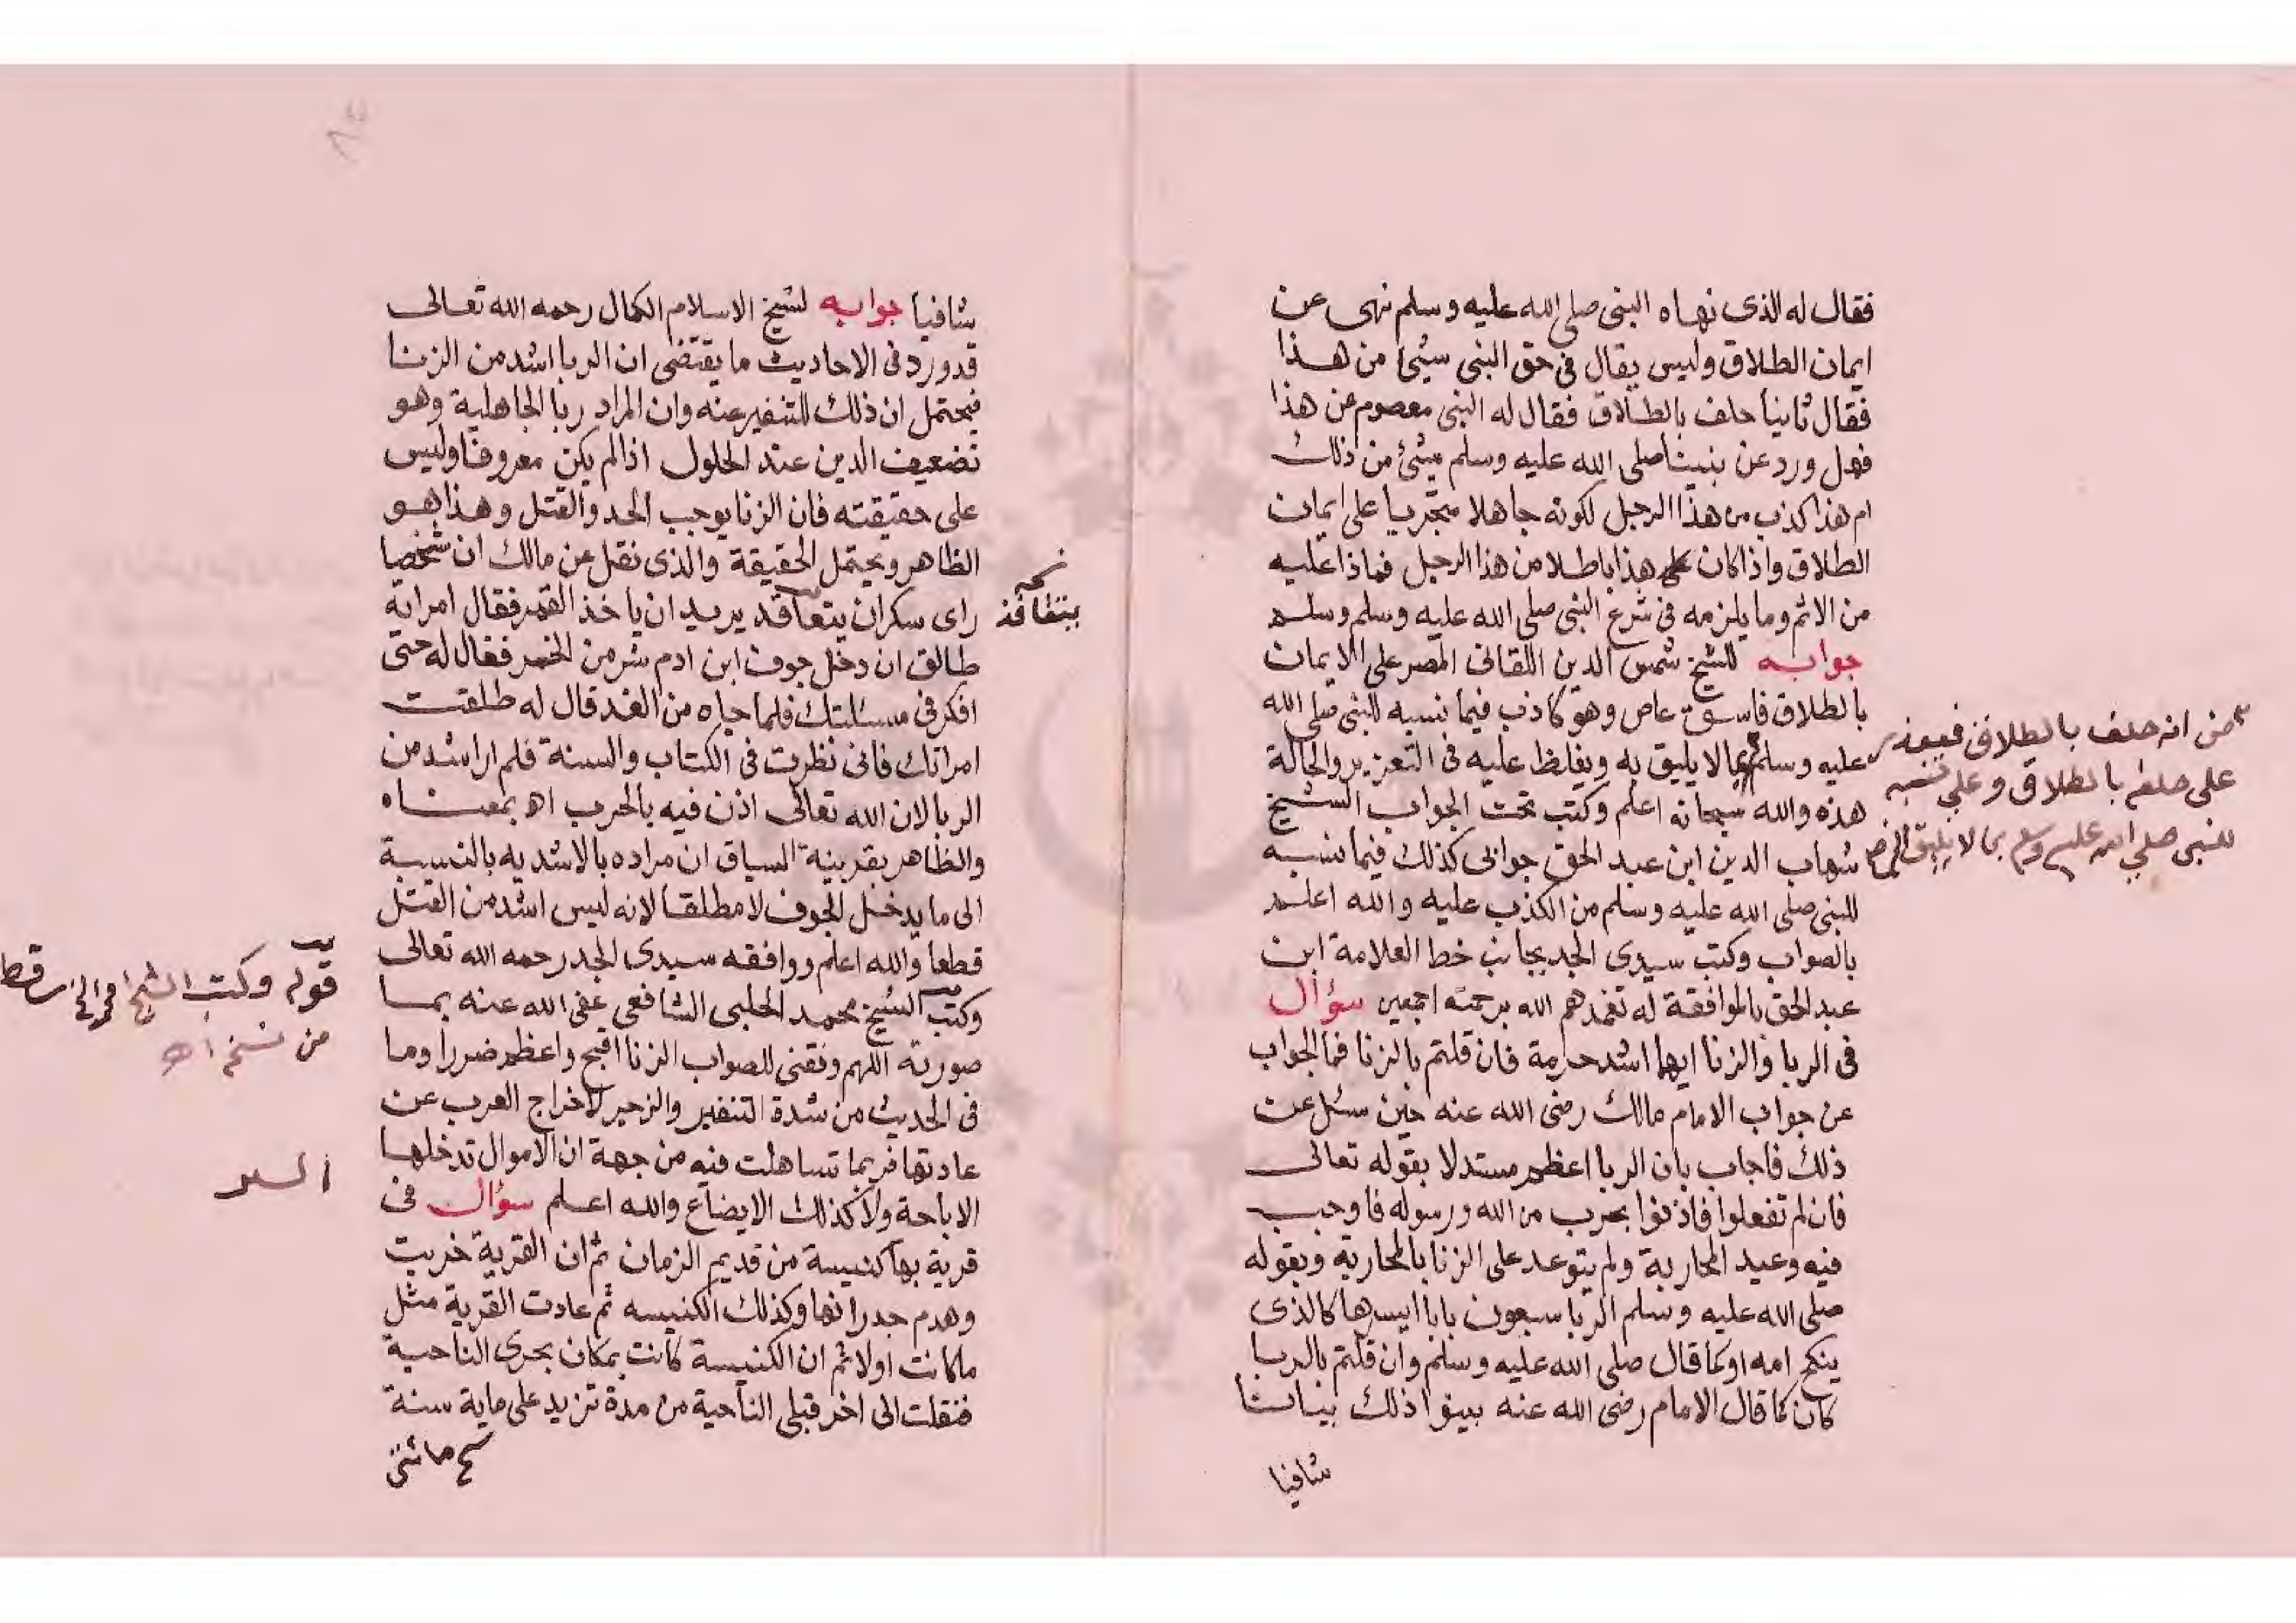 فقال له الذى نهاه النبى صلى الله عليه وسلم نهى عن
ايمان الطلاق وليس يقال فى حق النبى شيئ من هذا
فقال ثانيا حلف بالطلاق فقال له النبى معصوم من هذا
فهل ورد عن نبينا صلى الله عليه وسلم شيئ من ذلك
ام هذا كذب من هذا الرجل لكونه جاهلا متجريا على ايمان
الطلاق واذا كان هذا باطلا من هذا الرجل فماذا عليه
من الاثم وما يلزمه فى شرع النبى صلى الله عليه وسلم وسلم
جوابه للشيخ شمس الدين اللقانى المصر على الايمان
بالطلاق فاسق عاص وهو كاذب فيما نسبه للنبى صلى الله
عليه وسلم مما لا يليق به ويغلظ عليه فى التعزير والحالة
هذه والله سبحانه اعلم وكتب تحت الجواب الشيخ
شهاب الدين ابن عبد الحق جوابى كذلك فيما نسبه
للنبى صلى الله عليه وسلم من الكذب عليه والله اعلم
بالصواب وكتب سيدى الجد بجانب خط العلامة ابن
عبد الحق بالموافقة له تغمدهم الله برحمته اجمعين سؤال
فى الربا والزنا ايهما اشد حرمة فان قلتم بالزنا فما الجواب
عن جواب الامام مالك رضى الله عنه حين سئل عن
ذلك فاجاب بان الربا اعظم مستدلا بقوله تعالى
فان لم تفعلوا فاذنوا بحرب من الله ورسوله فاوجب
فيه وعيد المحاربة ولم يتوعد على الزنا بالمحاربة وبقوله
صلى الله عليه وسلم الربا سبعون بابا ايسرها كالذى
ينكح امه او كما قال صلى الله عليه وسلم وان قلتم بالربا
كان كما قال الامام رضى الله عنه بينوا ذلك بيانا
شافيا
من انه حلف بالطلاق فيعزر
على حلفه بالطلاق وعلى نسبه
للنبى صلى الله عليه وسلم بما لا يليق
شافيا جوابه لشيخ الاسلام الكمال رحمه الله تعالى
قد ورد فى الاحاديث ما يقتضى ان الربا اشد من الزنا
فيحتمل ان ذلك للتنفير عنه وان المراد ربا الجاهلية وهو
تضعيف الدين عند الحلول اذا لم يكن معروفا وليس
على حقيقته فان الزنا يوجب الحد والقتل وهذا هو
الظاهر ويحتمل الحقيقة والذى نقل عن مالك ان شخصا
راى سكران يتعاقد يريد ان ياخذ القمر فقال امراته
طالق ان دخل جوف ابن ادم شر من الخمر فقال له حتى
افكر فى مسئلتك فلما جاه من الغد قال له طلقت
امراتك فانى نظرت فى الكتاب والسنة فلم ار اشد من
الربا لان الله تعالى اذن فيه بالحرب اه بمعناه
والظاهر بقرينة السياق ان مراده بالاشدية بالنسبة
الى ما يدخل الجوف لا مطلقا لانه ليس اشد من القتل
قطعا والله اعلم ووافقه سيدى الجد رحمه الله تعالى
وكتب الشيخ محمد الحلبى الشافعى عفى الله عنه بما
صورته اللهم وفقنى للصواب الزنا اقبح واعظم ضررا وما
فى الحديث من شدة التنفير والزجر لاخراج العرب عن
عادتها فربما تساهلت فيه من جهة ان الاموال تدخلها
الاباحة ولا كذلك الابضاع والله اعلم سؤال فى
قرية بها كنيسة من قديم الزمان ثم ان القرية خربت
وهدم جدرانها وكذلك الكنيسه ثم عادت القرية مثل
ما كانت اولا ثم ان الكنيسة كانت بمكان بحرى الناحية
فنقلت الى اخر قبلى الناحية من مدة تزيد على ماية سنة
نسخه
قوله وكتب الشيخ الخ سقط
من نسخ اه